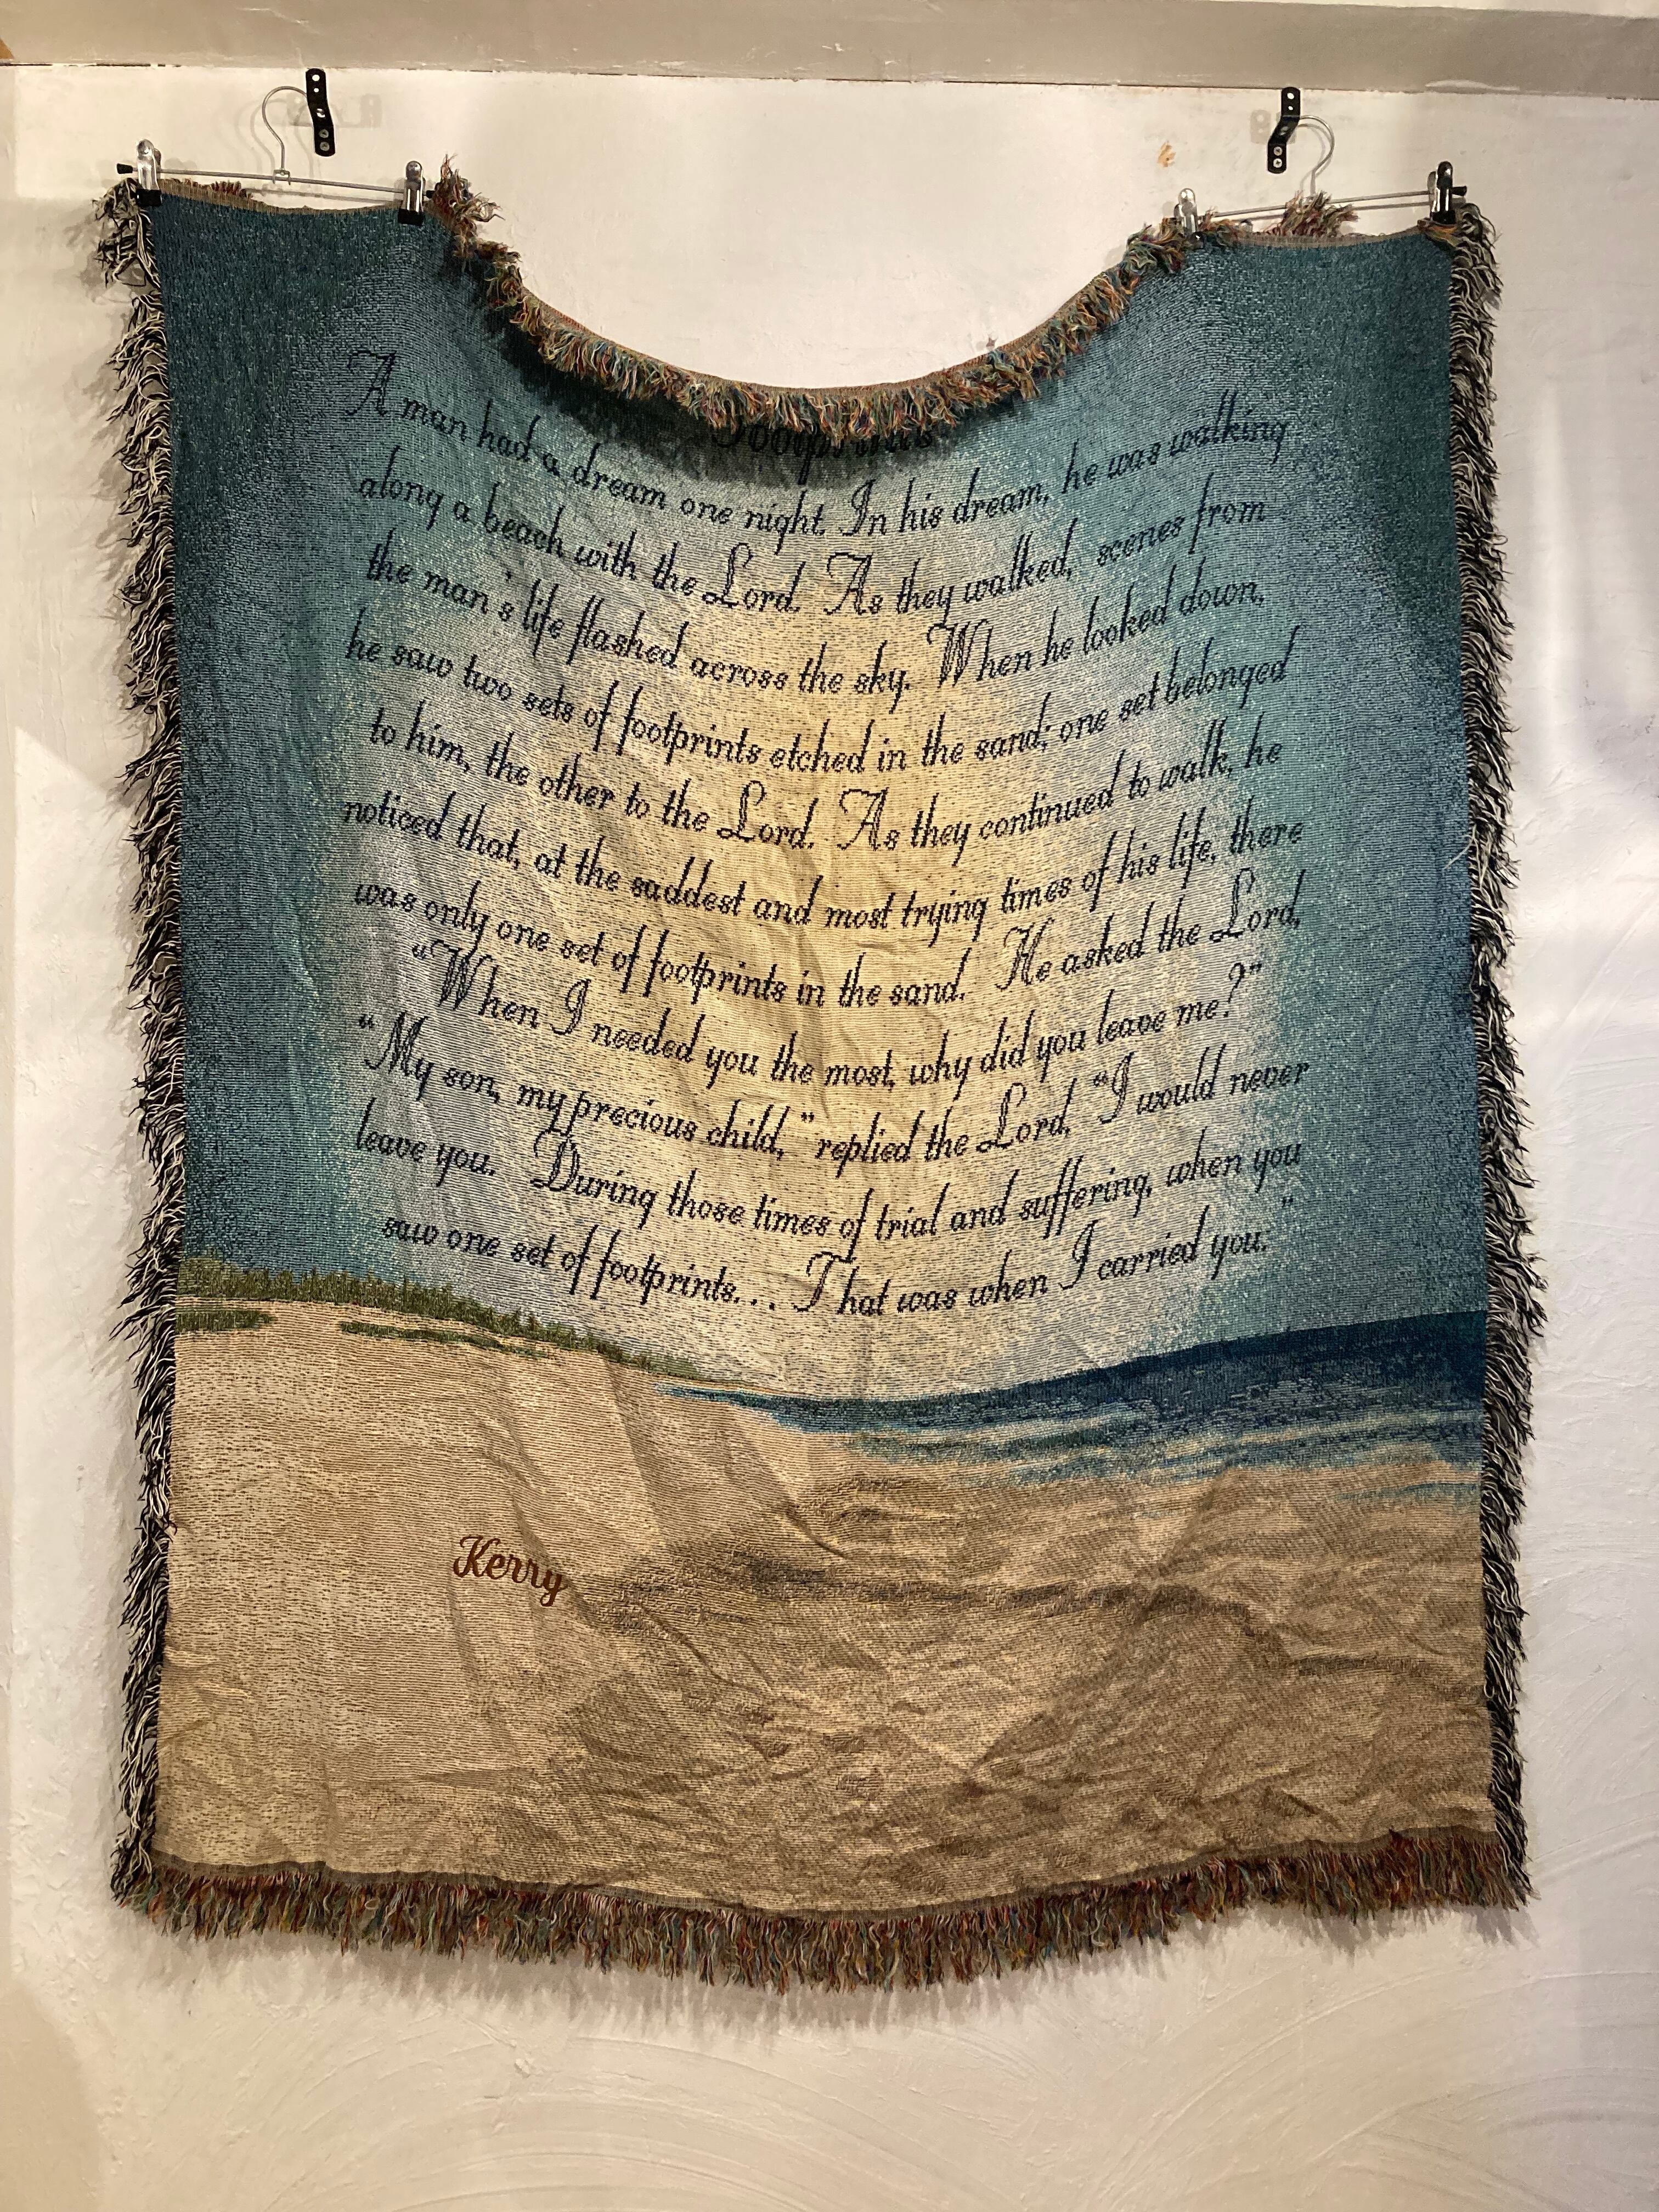 Footprints
A man had a dream one night. In his dream, he was walking
along a beach with the Lord. As they walked, scenes from
the man's life flashed across the sky. When he looked down,
he saw two sets of footprints etched in the sand; one set belonged
to him, the other to the Lord. As they continued to walk, he
noticed that, at the saddest and most trying times of his life, there
was only one set of footprints in the sand. He asked the Lord,
“When I needed you the most, why did you leave me?”
“My son, my precious child,” replied the Lord, “I would never
leave you. During those times of trial and suffering, when you
saw one set of footprints... That was when I carried you.”
Kerry